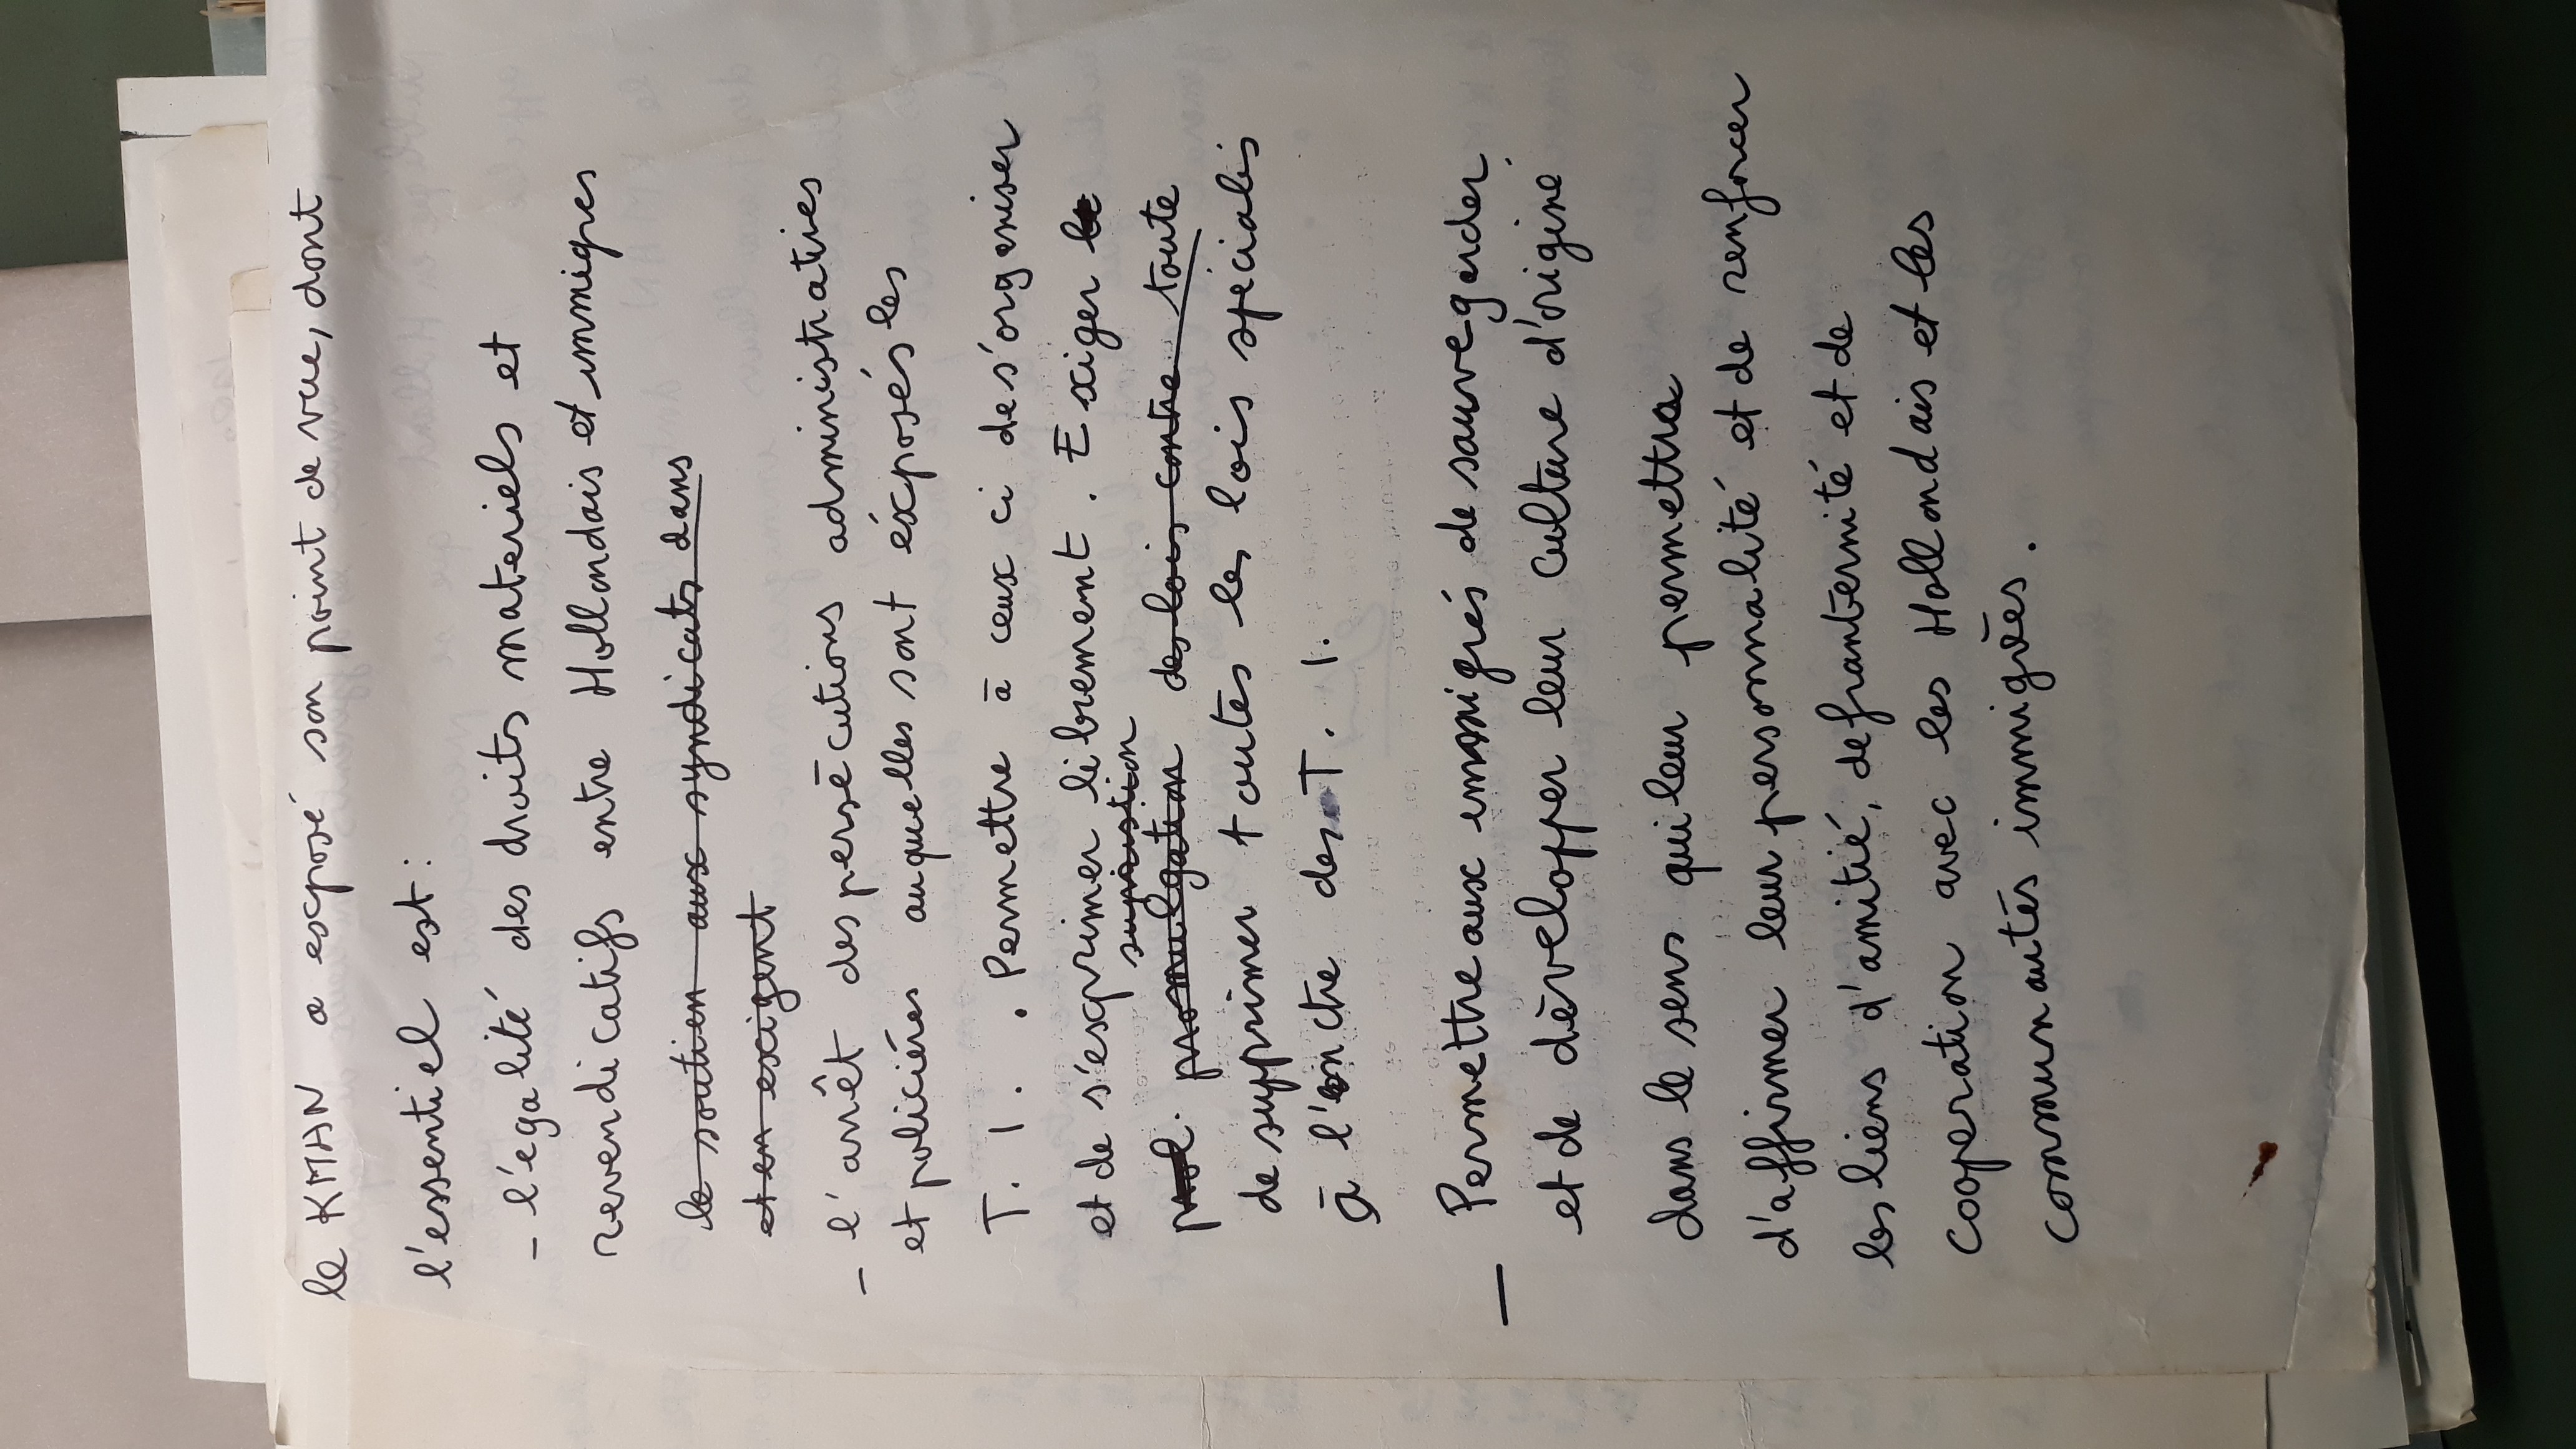 le KMAN a exposé son point de vue, dont
l'essentiel est:
- l'égalité des droits materiels et
revendicatifs entre Hollandais et immigres
le soutien aux syndicats dans
et en exigent
- l'arrêt des persécutions administratives
et policiéres auquelles sont éxposés les
T. I. . Permettre à ceux ci de s'organiser
et de s'exprimer librement. Exiger le
supression
promulgation des lois contre toute
de supprimer toutes les lois spécialis
à l'enctre des T. I.
- Permettre aux immigrés de sauvegarder
et de développer leur culture d'origine
dans le sens qui leur permettra
d'affirmer leur personnalité et de renforcer
les liens d'amitié, de franternité et de
cooperation avec les Hollondais et les
communautés immigrées.